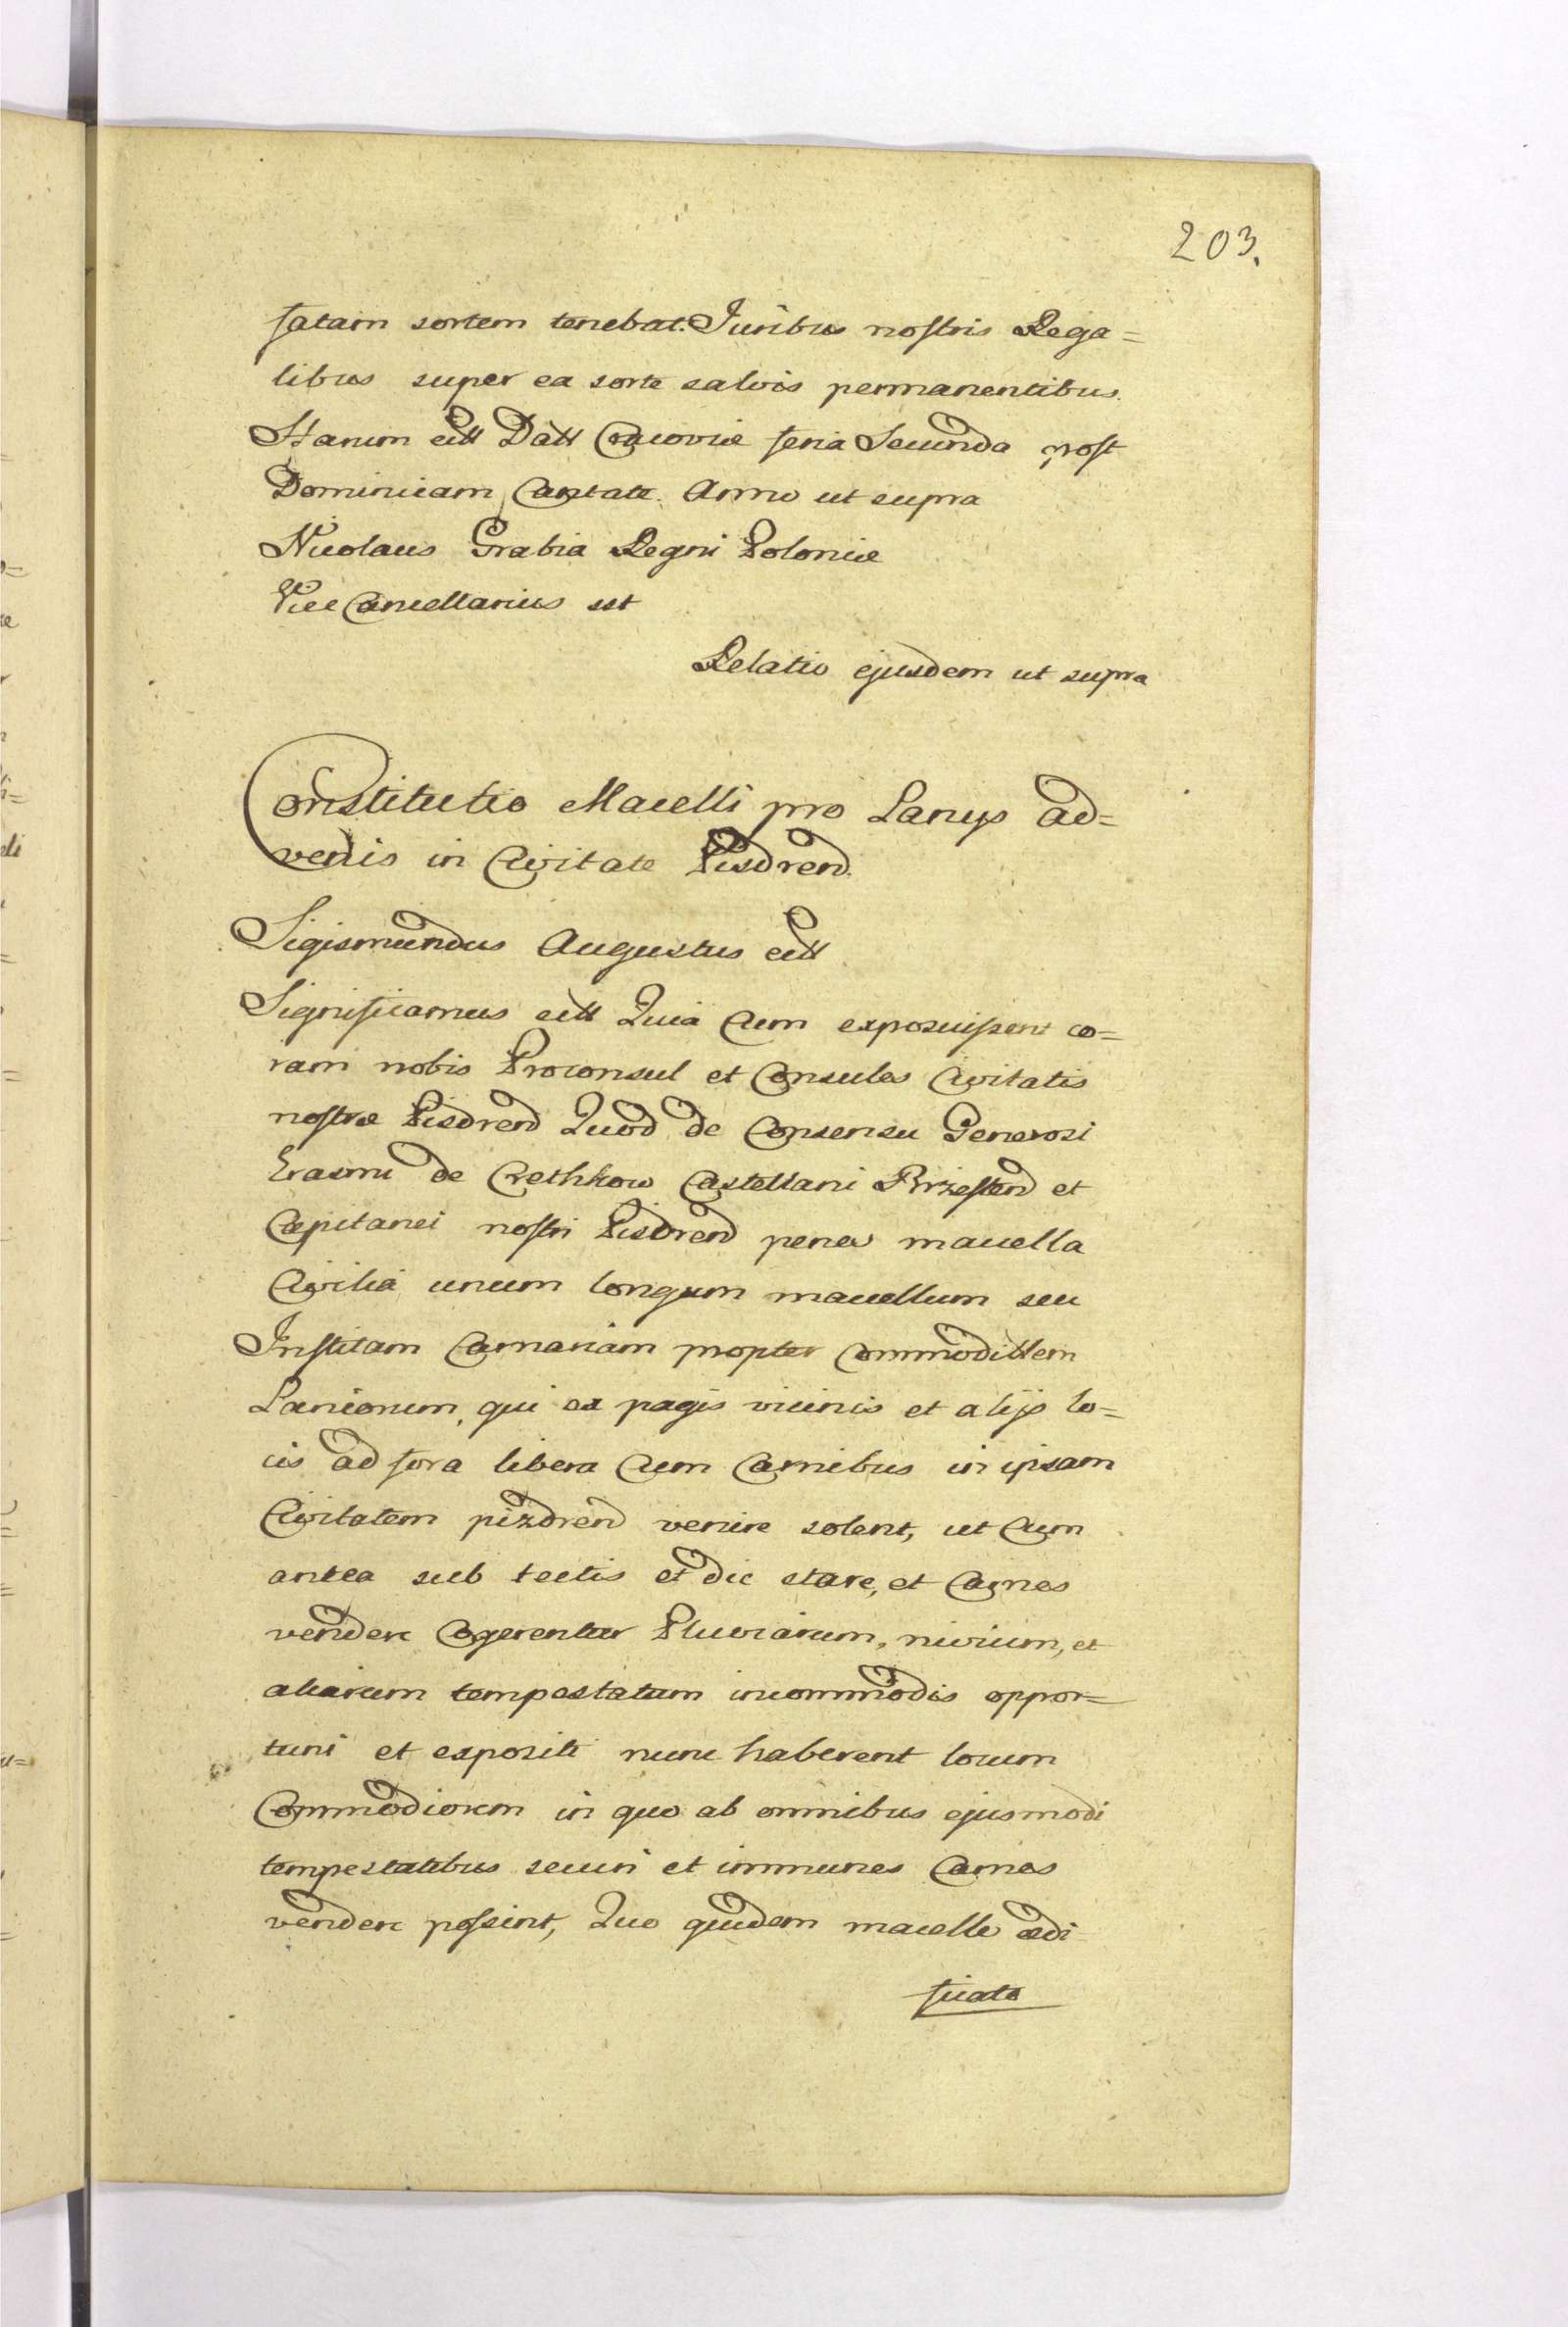 203.
fatam sortem tenebat. Juribus nostris Rega=
libus super ea sorte salvis permanentibus.
Harum ett Datt Cracoviæ feria Secunda post
Dominicam Cantate. Anno ut supra
Nicolaus Grabia Regni Poloniæ
Vice Cancellarius sst
Relatio ejusdem ut supra
Constitutio Macelli pro Lanijs ad=
venis in Civitate Pisdrend.
Sigismundus Augustus ett
Significamus ett Quia Cum exposuissent co=
ram nobis Proconsul et Consules Civitatis
nostræ Pisdrend Quod de Consensu Generosi
Erasmi de Crethkow Castellani Brzestend et
Capitanei nostri Pisdrend penes macella
Civilia unum longum macellum seu
Institam Carnariam propter Commodittem
Lanionum, qui ex pagis vicinis et alijs lo=
cis ad fora libera Cum Carnibus in ipsam
Civitatem pizdrend venire solent, ut Cum
antea sub tectis et dic stare, et Carnes
vendere Cogerentur Pluviarum, nivium, et
aliarum tempestatum incommodis oppor=
tuni et expositi nunc haberent locum
Commodiorem in quo ab omnibus ejusmodi
tempestatibus securi et immunes Carnes
vendere possint, Quo quidem macello ædi
ficato